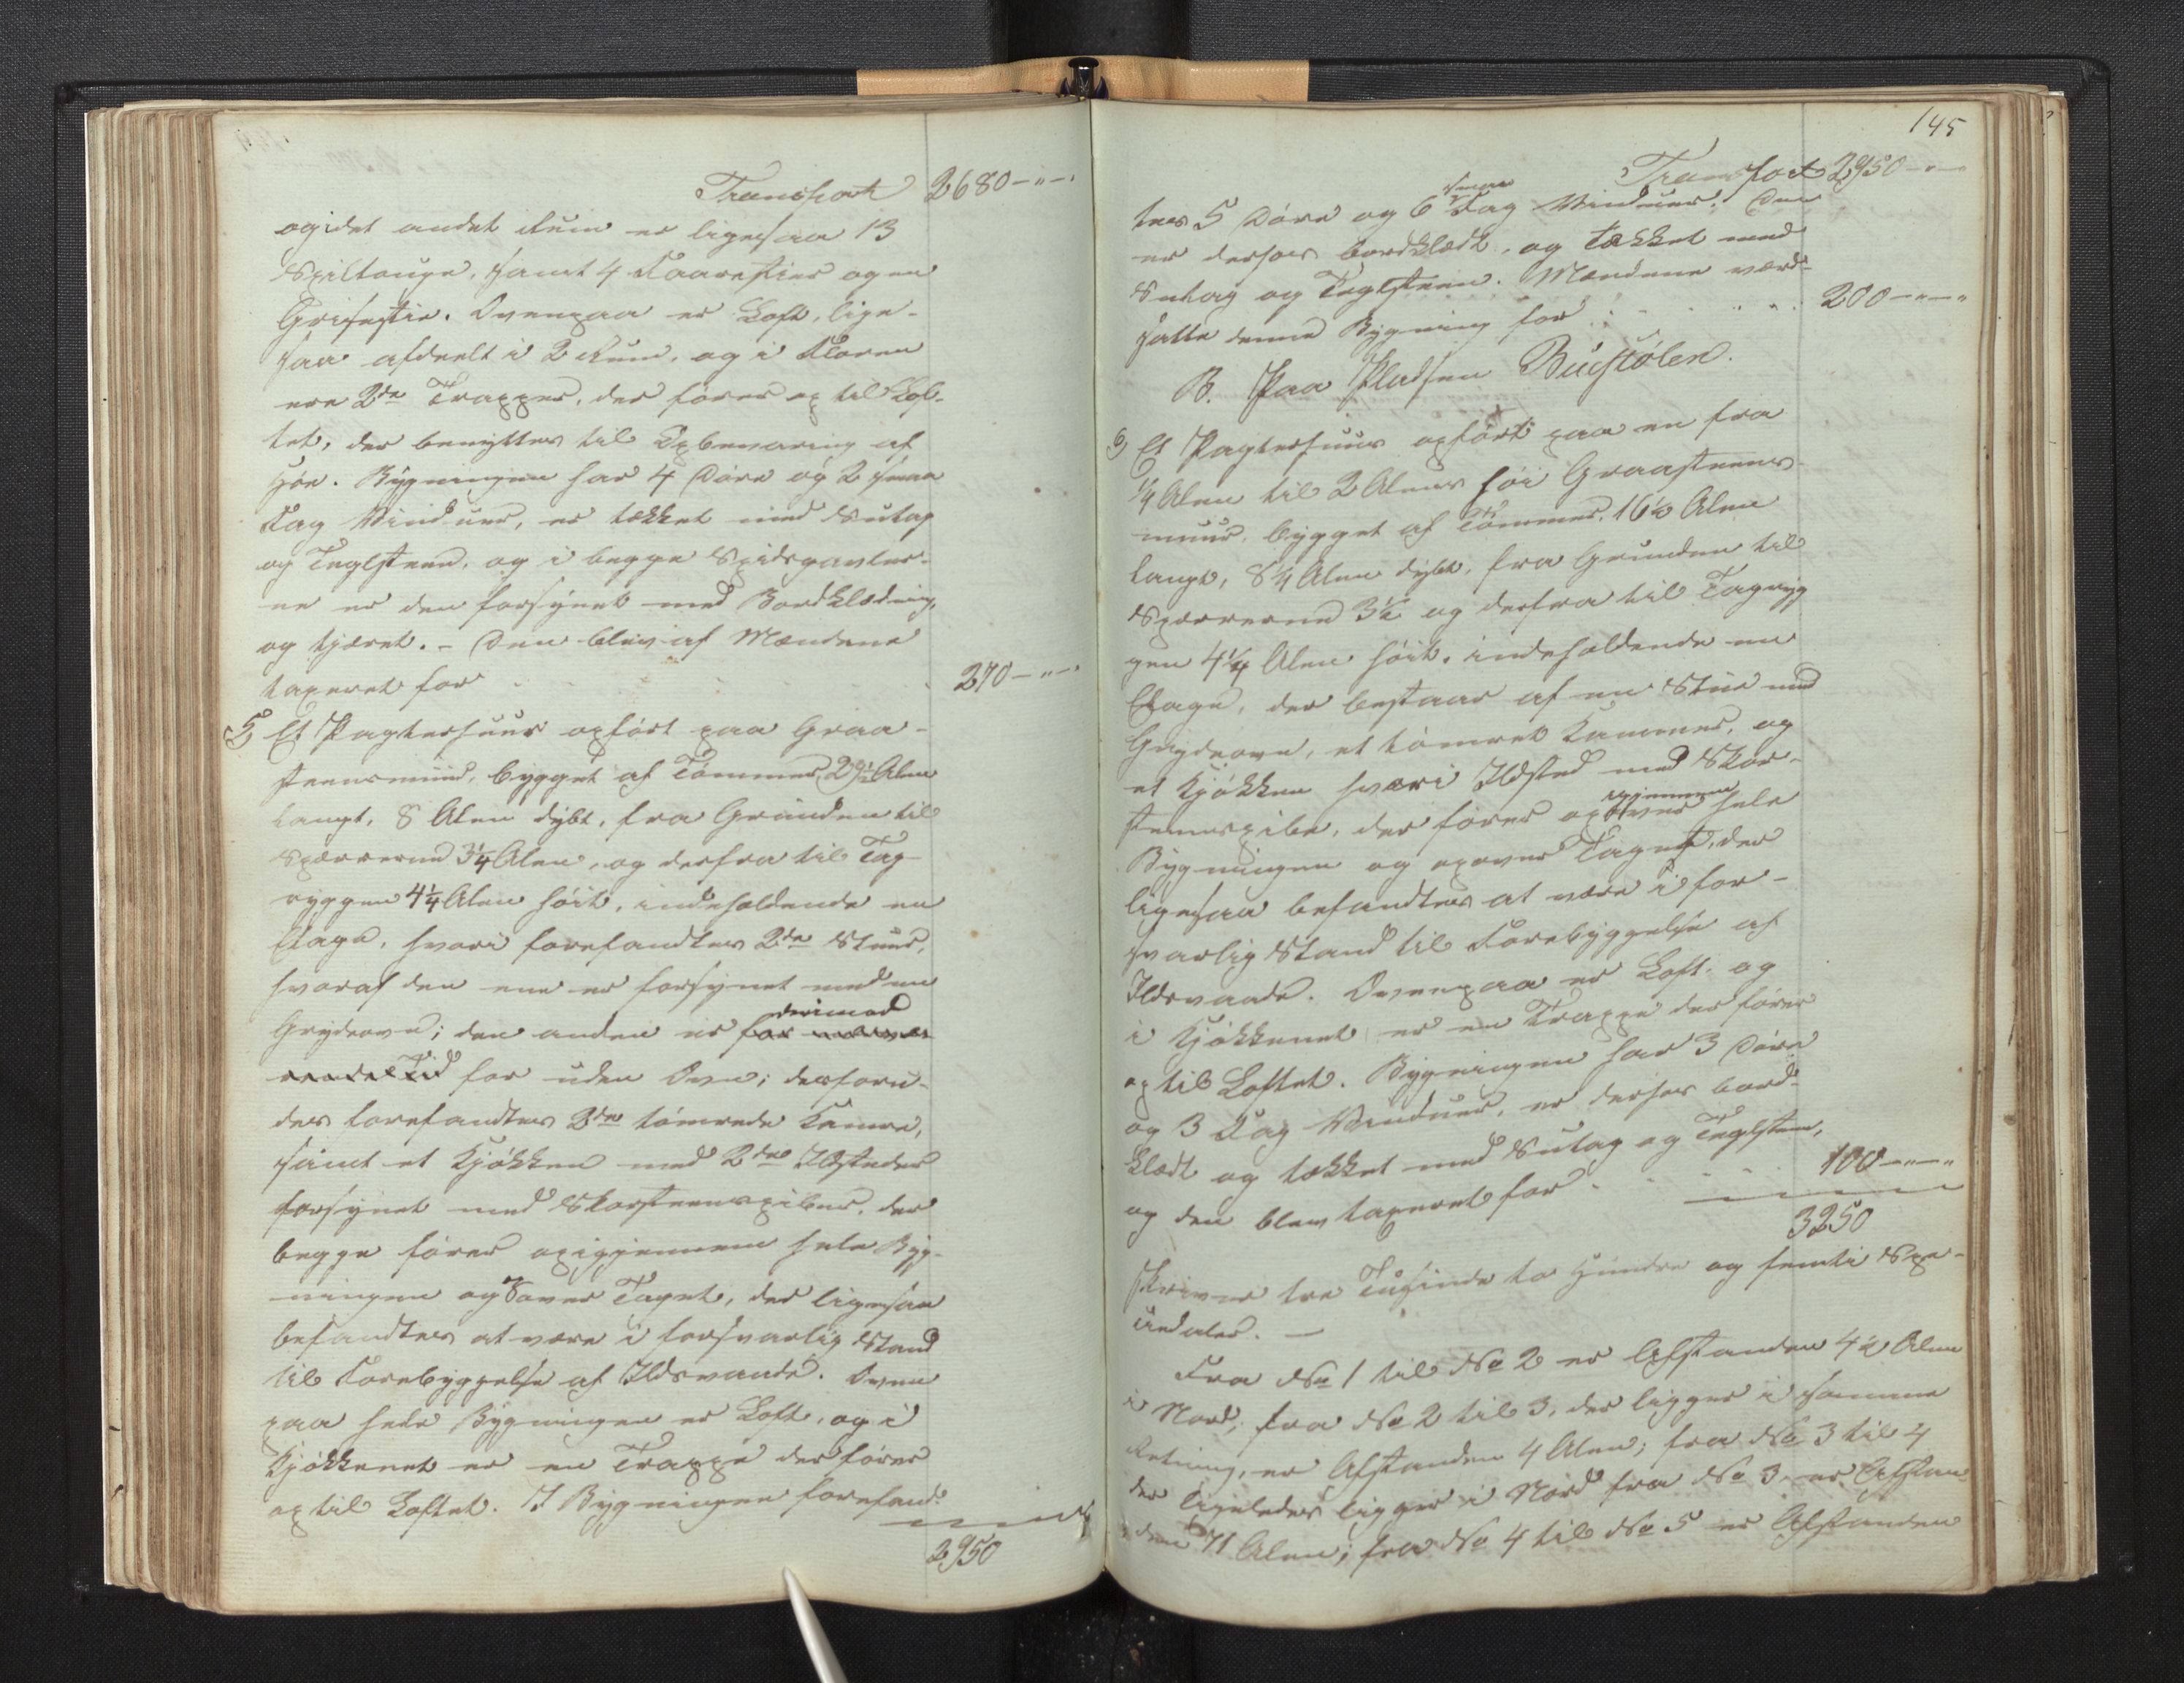 Transport 2680-"-"
og i det andet Rum er ligesaa 13
Spiltouge, samt 4 Faarestier og en
Grisestie. Ovenpaa er Loft, lige-
saa afdeelt i 2 Rum, og i Floren
ere 2de Trapper, der fører op til Lof-
tet, der benyttes til Opbevaring af
Høe. Bygningen har 4 Døre og 2 smaa
Fag Vinduer, er tækket med Sutag
og Teglsteen, og i begge Spidsgavler-
ne er den forsynet med Bordklædning,
og tjæret. - Den blev af Mændene
taxeret for 270-"-"
5, Et Pagterhuus opført paa Graa-
steensmuur, bygget af Tømmer, 29½ Alen
langt, 8 Alen dybt, fra Grunden til
Sperrerne 3¼ Alen, og derfra til Tag-
ryggen 4¼ Alen høit, indeholdende en
Etage, hvori forefandtes 2de Stuer,
hvoraf den ene er forsynet med en
derimod
Grydeovn; den anden er for nærvæ-
rende Tid for uden Ovn; desforu-
den forefandtes 2de tømrede Kamre,
samt et Kjøkken med 2de Ildsteder
forsynet med Skorsteenspiber, der
begge fører opigjennem hele Byg-
ningen og over Taget, der ligesaa
befandtes at være i forsvarlig Stand
til Forebyggelse af Ildsvaade. Oven
paa hele Bygningen er Loft, og i
Kjøkkenet er en Trappe der fører
op til Loftet. I Bygningen forefand-
2950
145
Transport 2950-"-
smaa
tes 5 Døre og 6 Fag Vinduer. Den
er derhos bordklædt, og tækket med
Sutag og Teglsteen. Mændene værd-
satte denne Bygning for 200-"-"
B. Paa Pladsen Buestølen.
6, Et Pagterhuus opført paa en fra
¼ Alen til 2 Alens høi Graasteens-
muur, bygget af Tømmer, 16½ Alen
langt, 8¼ Alen dybt, fra Grunden til
Sperrerne 3½ og derfra til Tagryg
gen 4¼ Alen høit, indeholdende en
Etage, der bestaar af en Stue med
Grydeovn, et tømret Kammer, og
et Kjøkken hvori Ildsted med Skor-
igjennem
steenspibe, der fører op over hele
Bygningen og opover Taget, der
ligesaa befandtes at være i for-
svarlig Stand til Forebyggelse af
Ildsvaade. Ovenpaa er Loft, og
i Kjøkkenet er en Trappe der fører
op til Loftet. Bygningen har 3 Døre
og 3 Fag Vinduer, er derhos bord-
klædt og tækket med Sutag og Teglsteen,
og den blev taxeret for 100-"-"
3250
skriver tre Tusinde to Hundre og femti Spe-
ciedaler. -
Fra No 1 til No 2 er Afstanden 4½ Alen
i Nord; fra No 2 til 3, der ligger i samme
Retning, er Afstanden 4 Alen; fra No 3 til 4
der ligeledes ligger i Nord fra No 3, er Afstan-
den 71 Alen; fra No 4 til No 5 er Afstanden